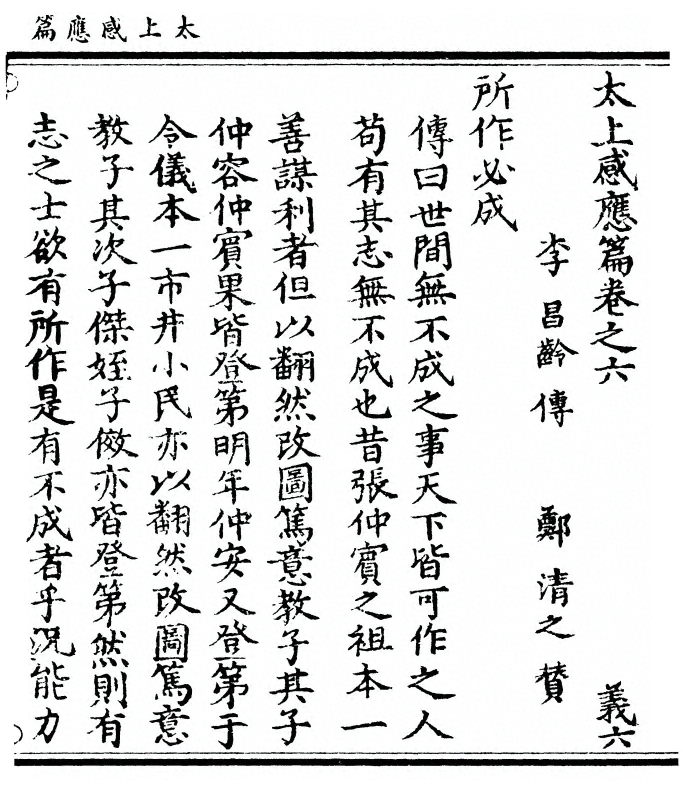 太上感應篇
太上感應篇卷之六 義六
李昌齡傳 鄭清之贊
所作必成
傳曰世間無不成之事天下皆可作之人
苟有其志無不成也昔張仲賓之祖本一
善謀利者但以翻然改圖篤意教子其子
仲容仲賓果皆登第明年仲安又登第于
令儀本一市井小民亦以翻然改圖篤意
教子其次子傑姪子傚亦皆登第然則有
志之士欲有所作是有不成者乎況能力